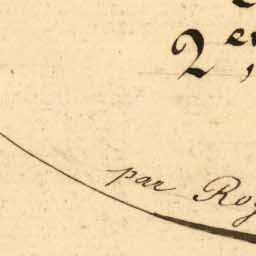 2e
par Roy